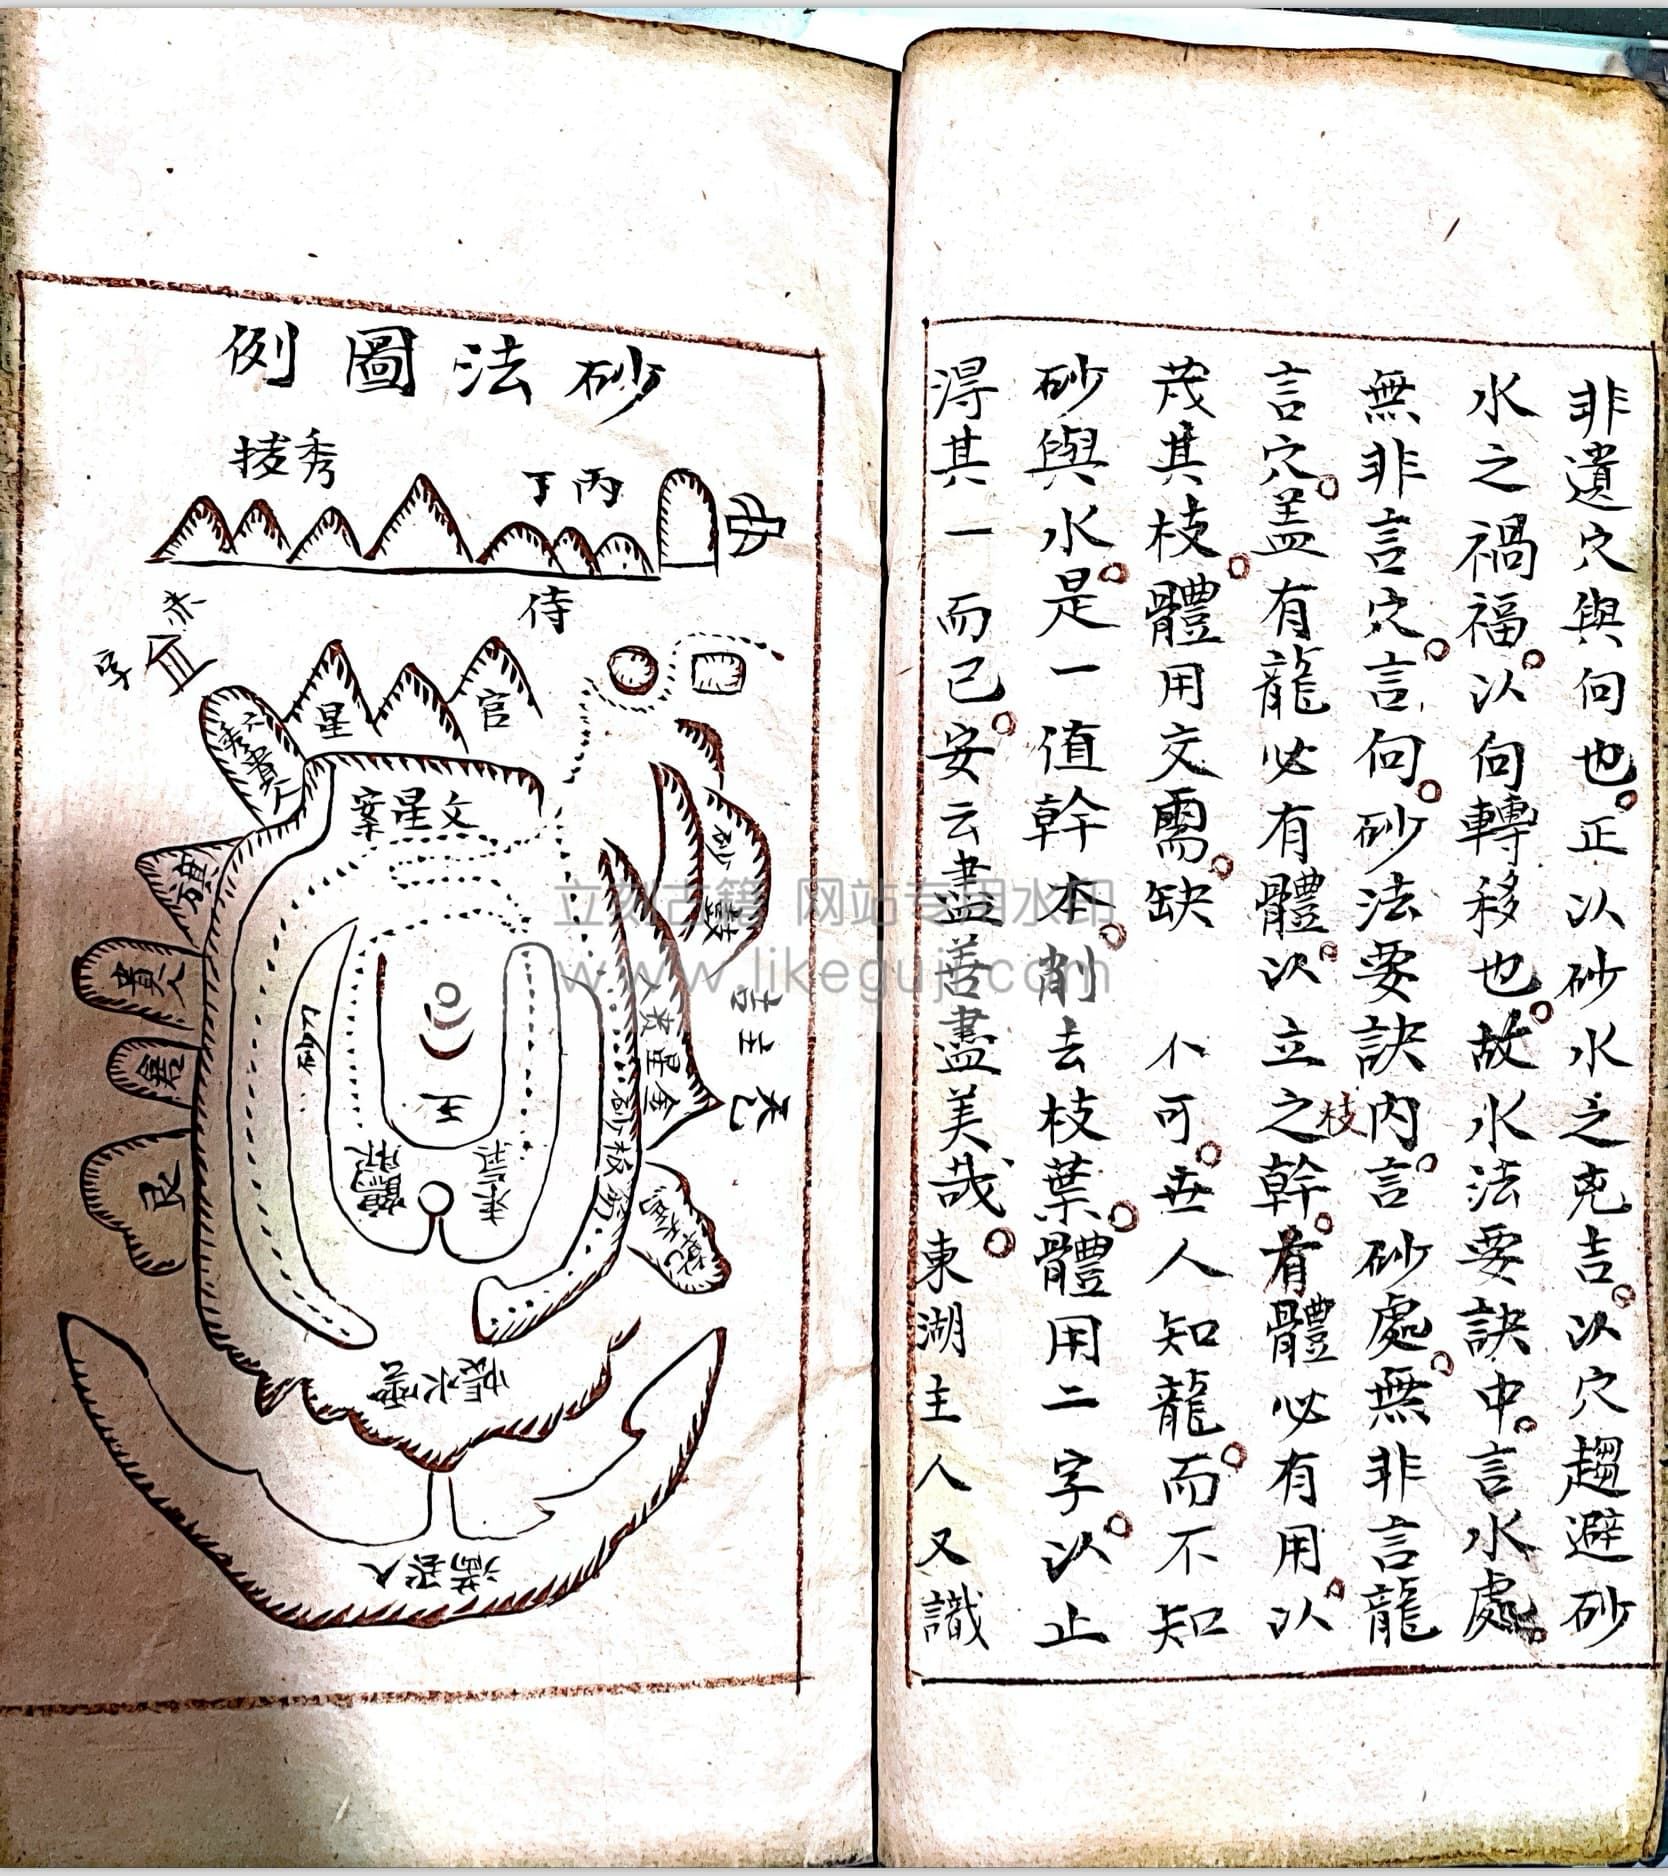 非遺穴與向也正以砂水之克吉以穴趨避砂
水之禍福以向轉移也故水法要訣中言水處
無非言穴言向砂法要訣内言砂處無非言龍
言穴盖有龍必有體次立之幹有體必有用以
枝
茂其枝體用交需缺 不可世人知龍而不知
砂與水是一值幹本削去枝葉體用二字以止
淂其一而已安云盡善盡美哉東湖主人又識
砂法圖例
秀
丙丁
侍
官
星
文星案
旗
貴人
艮
砂
砂
鼓
金星
立刻古籍 网站专用水印
www.likeguji.com